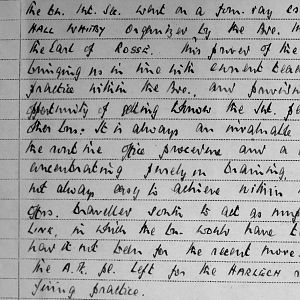 the Bn. Int. Sec. went on a four day ex
HALL WHITBY organized by the Bde. In
the Earl of ROSSE. This proved of the
bringing us in line with current tea
practice within the Bde., and provid
opportunity of getting know the Int. pe
other Bns. It is always an invaluable
the routine office procedure and a
concentrating purely on training
not always easy to achieve within
Offrs. travelled south to act as ump
LINK, in which the Bn. would have t
had it not been for the recent move.
the A.A. pl. left for the HARLECH
firing practice.